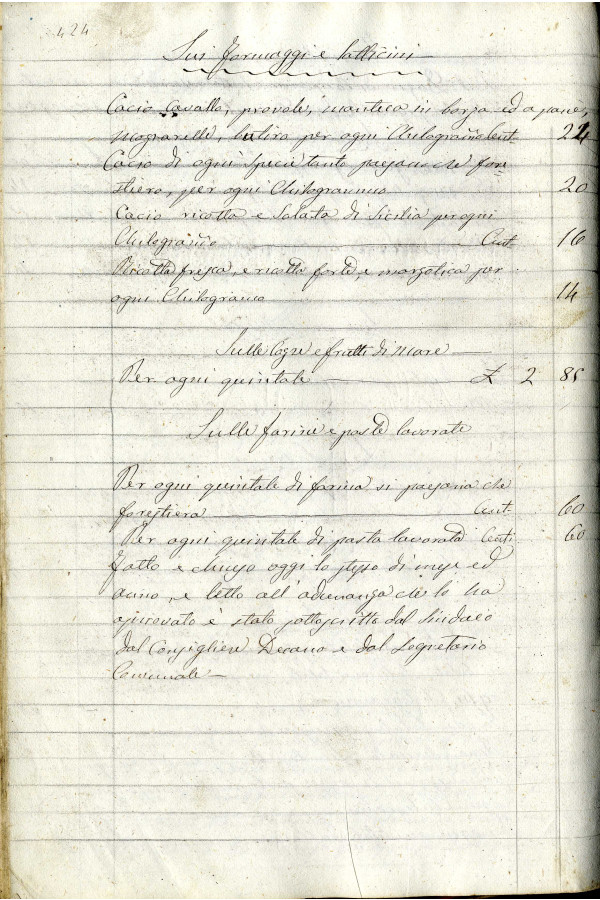 424
Sui formaggi e latticini
Cacio Cavallo, provole, manteca in borza ed a pane,
mozzarelle, butiro per ogni Chilogramo Cent. 22
Cacio di ogni specie tanto paesano che fore
stiero, per ogni Chilogrammo 20
Cacio ricotta e Salata di Sicilia per ogni
Chilogramo Cent. 16
Ricotta fresca, e ricotta forte, e marzotica per
ogni Chilogramo 14
Sulle Cozze e frutti di mare
Per ogni quintale £ 2 85
Sulle farine e paste lavorate
Per ogni quintale di farina si paesana che
forestiera Cent. 60
Per ogni quintale di pasta lavorata Cent. 60
Fatto e chiuso oggi lo stesso di mese ed
anno, e letto all'adunanza che lo ha
approvato è stato sottoscritto dal Sindaco
dal Consigliere Decano e dal Segretario
Comunale